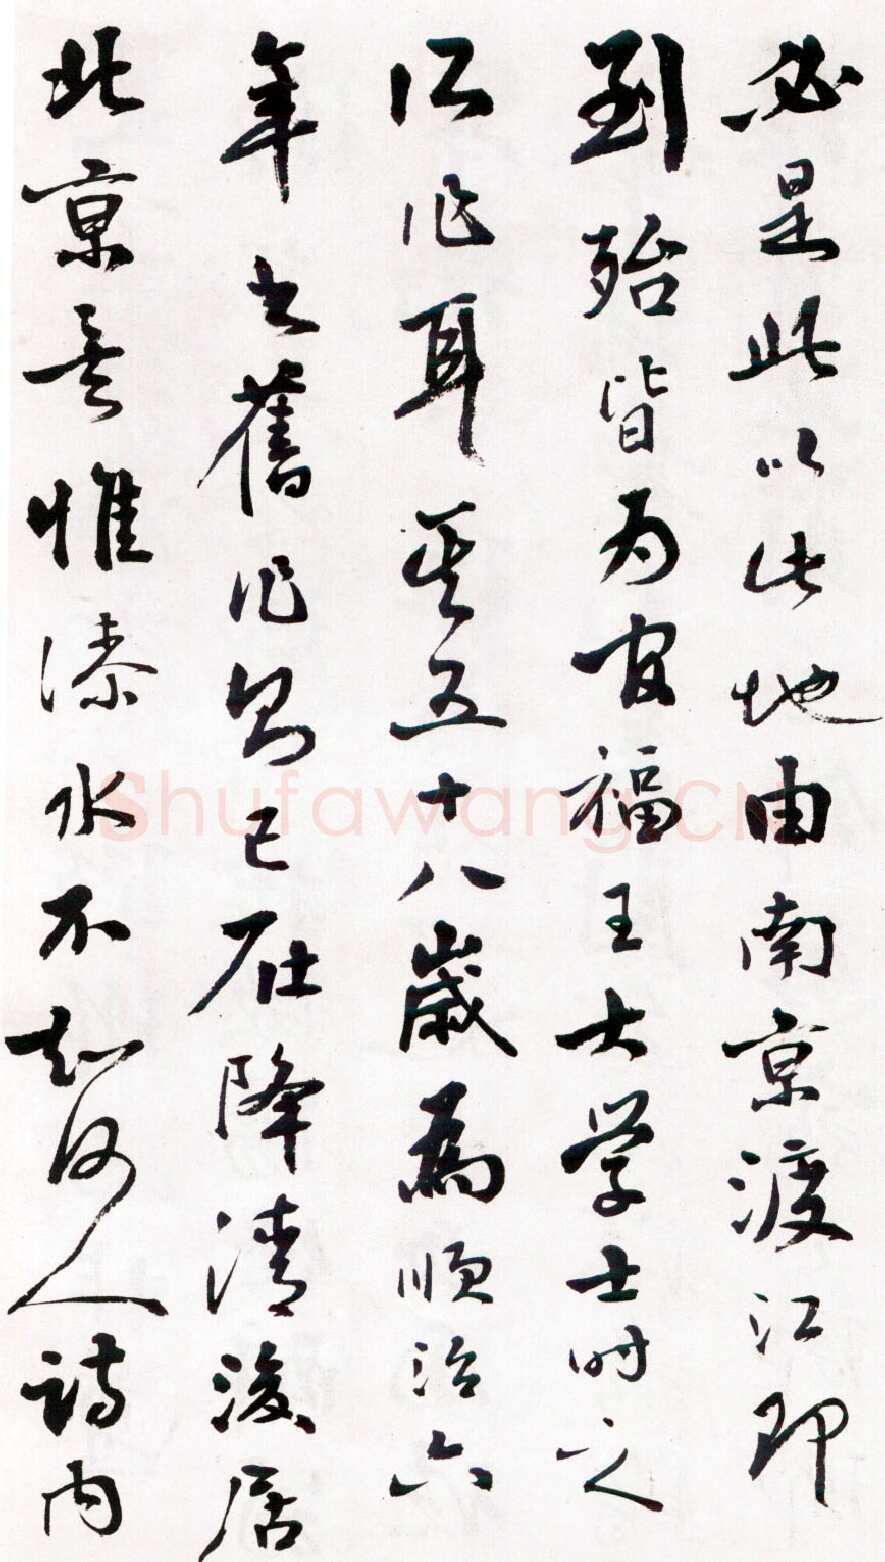 必是此以此地由南京渡江即
到殆皆为官福王大学士时之
所作耳其五十八歲為順治六
年之舊作則已在降清後居
北京矣惟溱水不知何人詩内
Shufawang.CN